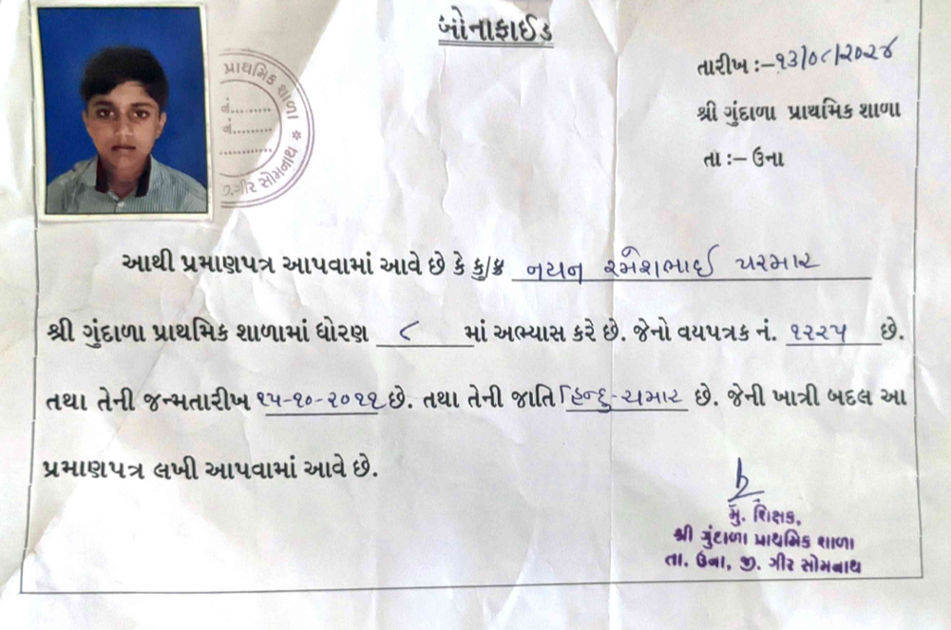 બોનાફાઈડ
તારીખ :–૧૩/૦૮/૨૦૨૪
શ્રી ગુંદાળા પ્રાથમિક શાળા
તા :– ઉના
પ્રાથમિક શાળા *
નં.........
નં.........
જી.ગીર સોમનાથ
આથી પ્રમાણપત્ર આપવામાં આવે છે કે કુ/કુ નયન રમેશભાઈ પરમાર
શ્રી ગુંદાળા પ્રાથમિક શાળામાં ધોરણ ૮ માં અભ્યાસ કરે છે. જેનો વયપત્રક નં. ૧૨૨૫ છે.
તથા તેની જન્મતારીખ ૧૫-૧૦-૨૦૧૧ છે. તથા તેની જાતિ હિન્દુ-ચમાર છે. જેની ખાત્રી બદલ આ
પ્રમાણપત્ર લખી આપવામાં આવે છે.
મુ. શિક્ષક,
શ્રી ગુંદાળા પ્રાથમિક શાળા
તા. ઉના, જી. ગીર સોમનાથ